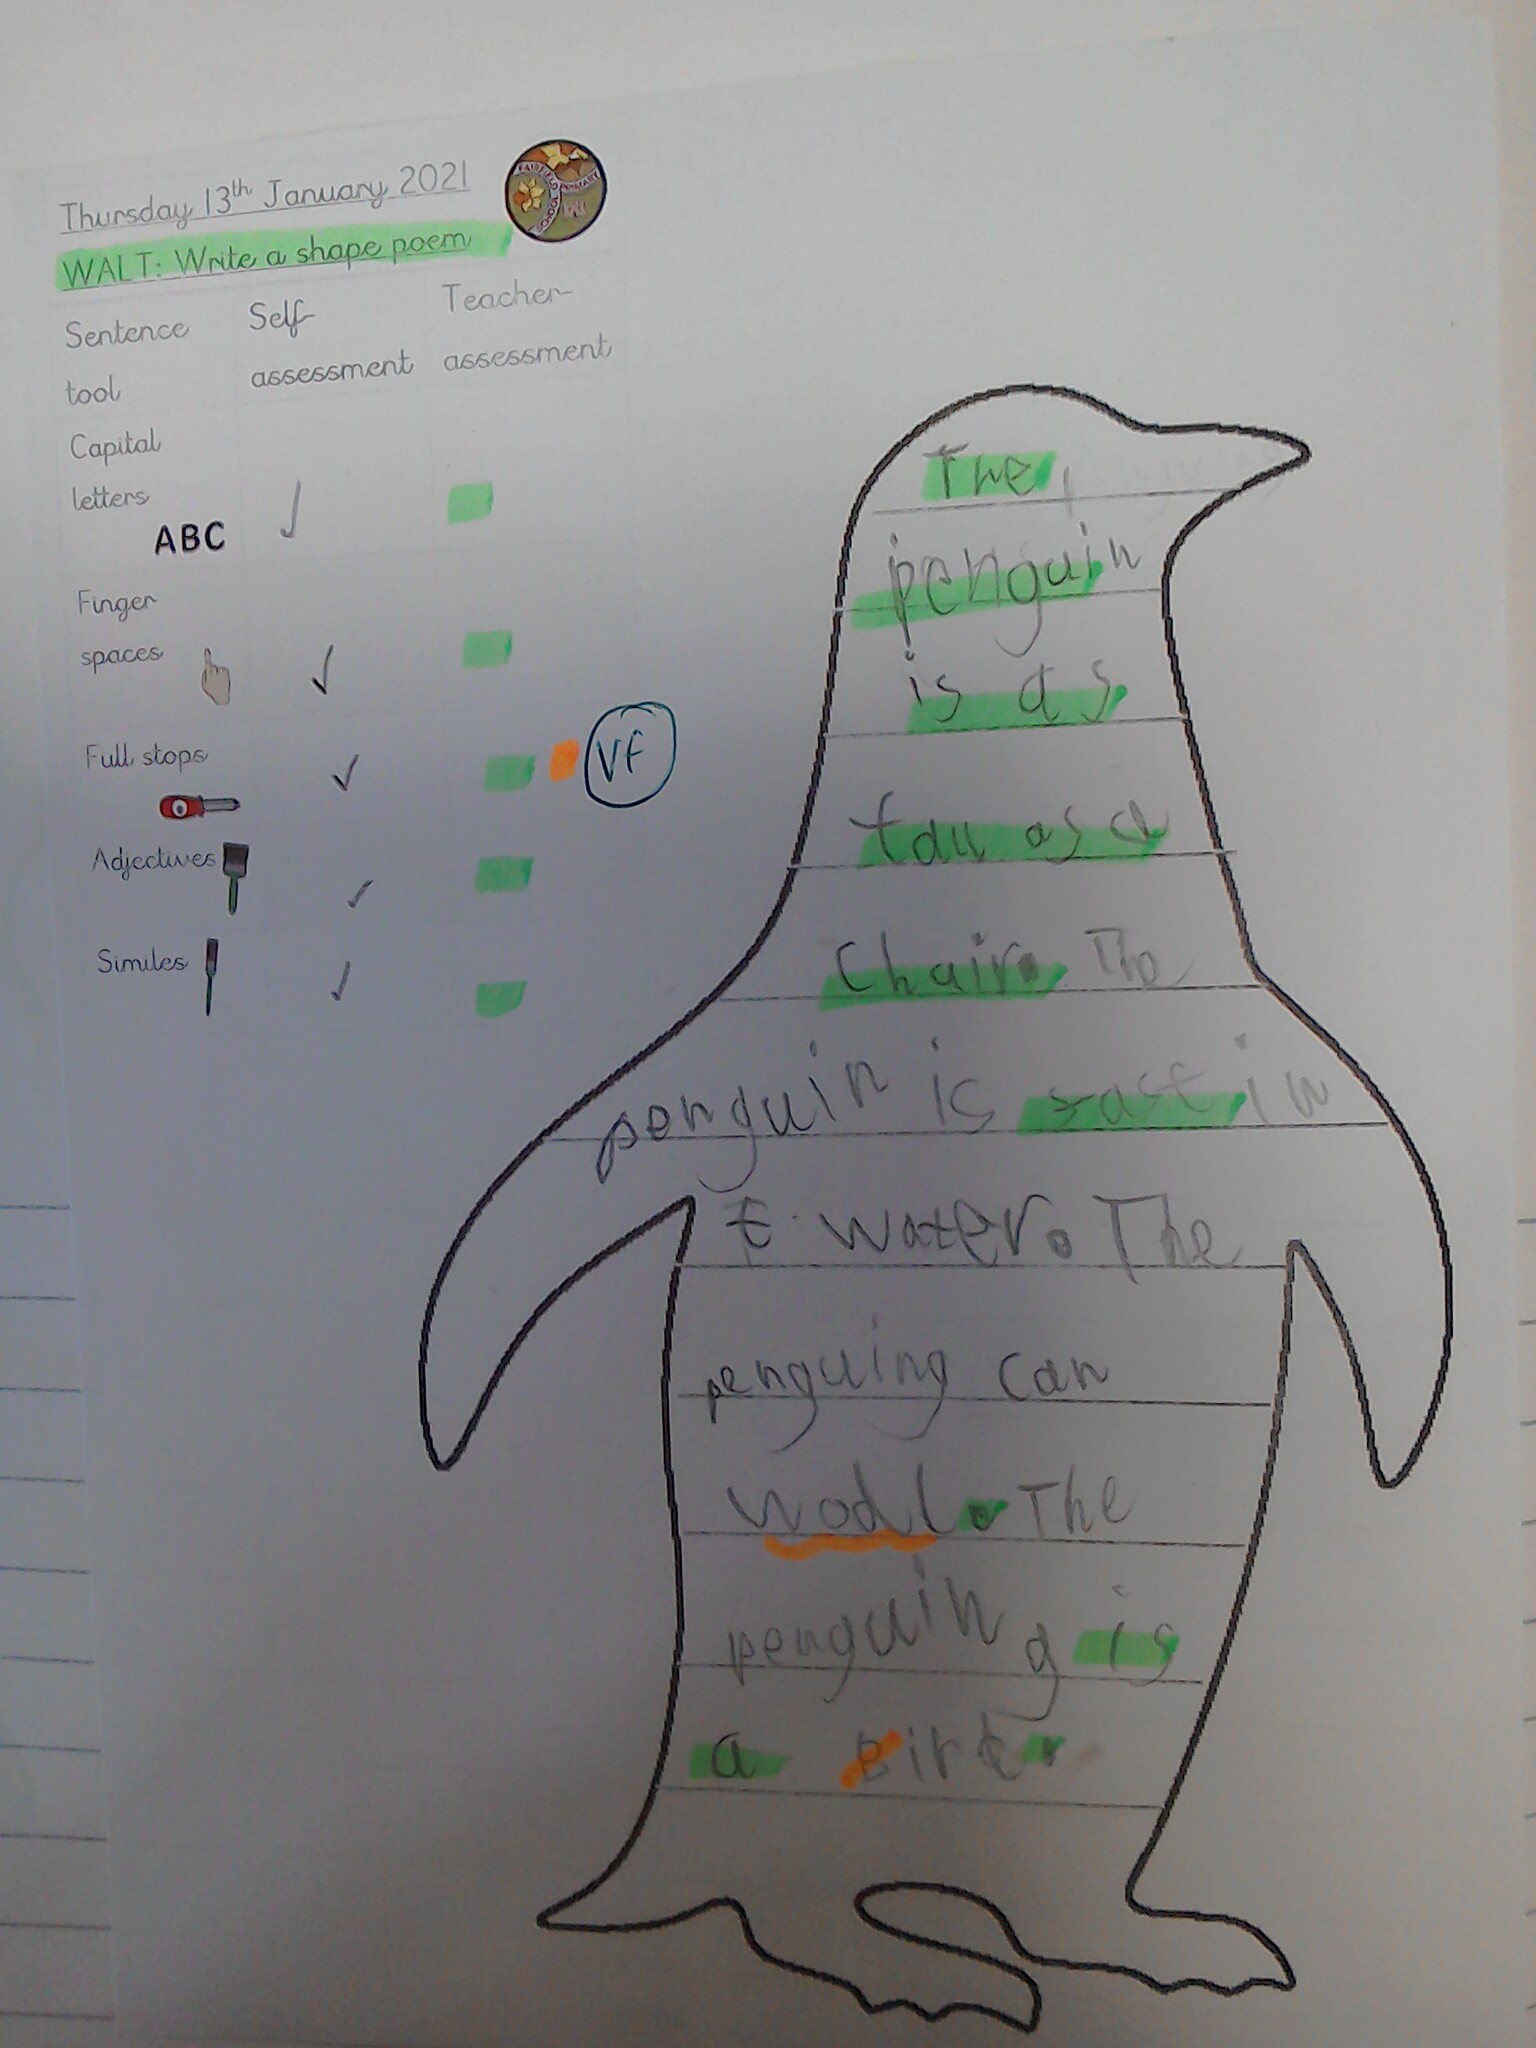 Thursday 13th January 2021
WALT: Write a shape poem
FAIRFIELD PRIMARY SCHOOL
Sentence tool
Self-assessment
Teacher-assessment
Capital letters
ABC
Finger spaces
Full stops
VF
Adjectives
Similes
The
penguin
is as
tall as a
Chair. The
penguin is fast in
t water. The
penguing can
wodl. The
penguin g is
a Bird.